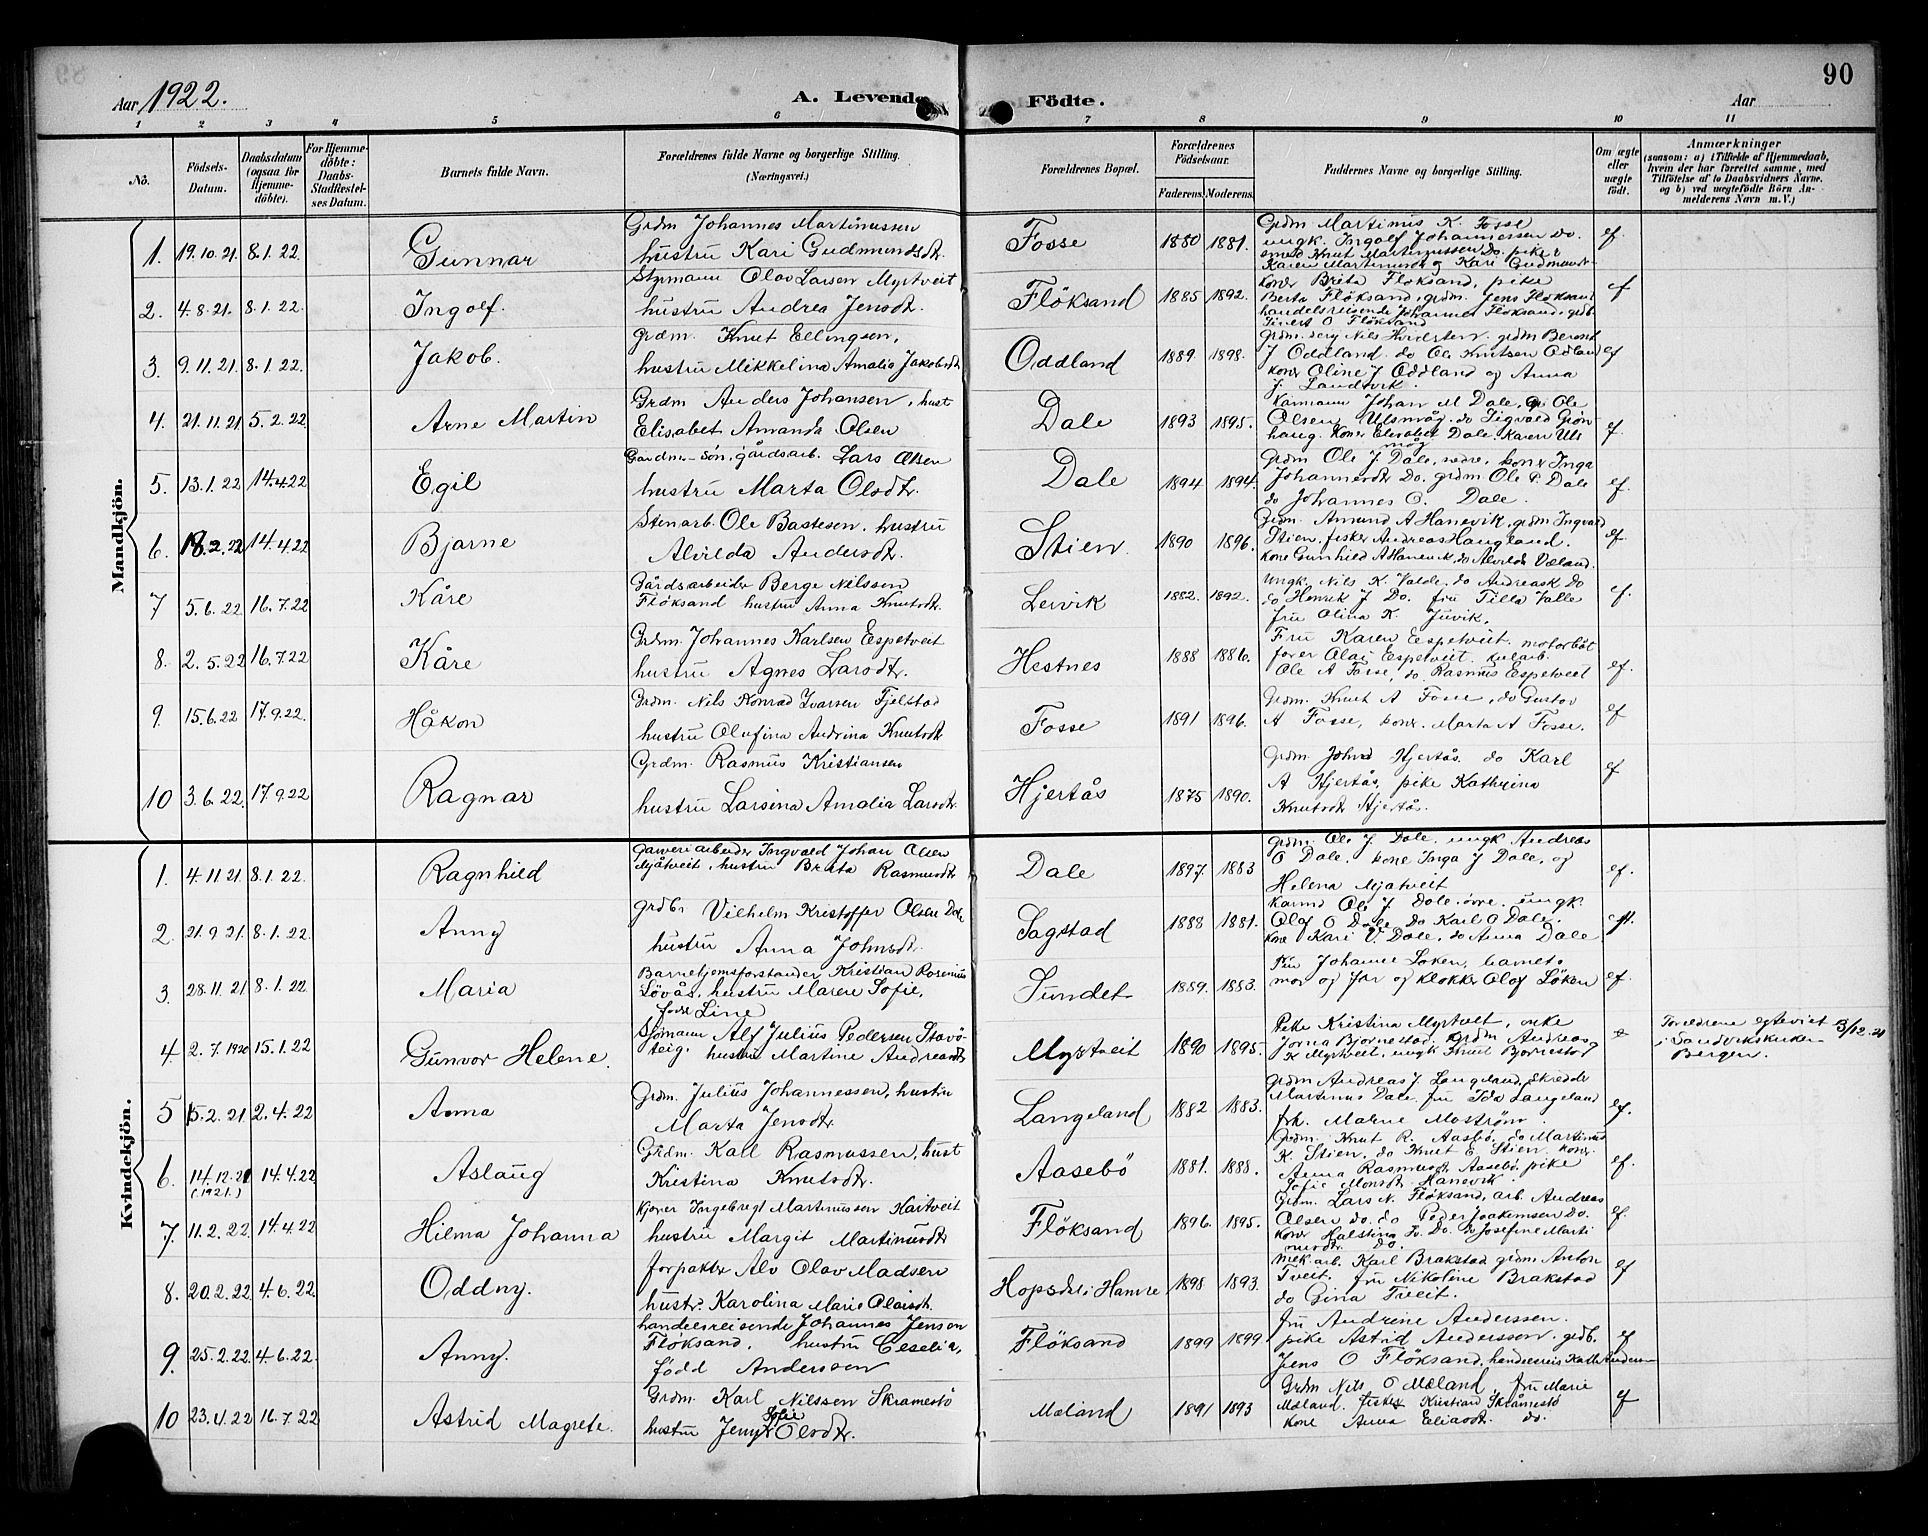 Aar 1922.
A. Levende Födte.
Aar
90
1 2 3 4 5 6 7 8 9 10 11
No.
Födsels-Datum.
Daabsdatum (ogsaa for Hjemme-döbte).
For Hjemme-döbte: Daabs-Stadfæstel-ses Datum.
Barnets fulde Navn.
Forældrenes fulde Navne og borgerlige Stilling. (Næringsvei.)
Forældrenes Bopæl.
Forældrenes Födselsaar.
Faderens. Moderens.
Faddernes Navne og borgerlige Stilling.
Om ægte eller uægte födt.
Anmærkninger
(saasom: a) i Tilfælde af Hjemmedaab, hvem der har forrettet samme, med Tilföielse af to Daabsvidners Navne, og b) ved uægtefödte Börn An-melderens Navn m. V.)
Mandkjön.
1. 19.10.21. 8.1.22. Gunnar
Grdm Johannes Martinussen
hustru Kari Gudmundsdt.
Fosse 1880 1881.
Grdm Martinus K. Fosse
ungk. Ingolf Johannessen do.
smed Knut Martinussen Do. piker
Karen Martinusdt og Kari Gudmundt
ef.
2. 4.8.21. 8.1.22. Ingolf.
Styrmann Olav Larsen Myrtveit
hustru Andrea Jensdt.
Flöksand 1885 1892.
koner Brita Flöksand, pike
Berta Flöksand, grdm. Jens Flöksand
handelsreisende Johannes Flöksand, grdb.
Sivert O Flöksand
ef
3. 9.11.21. 8.1.22 Jakob.
Grdm. Knut Ellingsen,
hustru Mikkelina Amalia Jakobsdt
Oddland 1889. 1898.
J Oddland do Ole Knutsen Odland
koner Oline J Oddland og Anna
J. Landsvik.
ef
4. 21.11.21. 5.2.22 Arne Martin
Grdm Anders Johansen, hust
Elisabet Amanda Olsen
Dale 1893 1895.
Karmann Johan M Dale, Ole
Olsen Ulsmåg, do Sigvald Grön
haug. Koner Elisabet Dale. Karen Uls
måg
ef.
5. 13.1.22 14.4.22 Egil
Gardm-sön, gårdsarb. Lars Olsen
hustru Marta Olsdt.
Dale 1894 1894.
Grdm Ole J Dale, nedre, koner Inga
Johannesdt Do. grdm Ole P. Dale
do Johannes O. Dale.
ef.
6. 18.2.22 14.4.22 Bjarne
Stenarb. Ole Bastesen, hustru
Alvilda Andersdt.
Stien 1890 1896.
Grdm. Amund A Hanevik, grdm Ingvald
Stien, fisker Andreas Haugland.
kone Gunhild A Hanevik, do Alvilde Væland.
ef.
7 5.6.22 16.7.22 Kåre
Gårdsarbeider Berge Nilssen
Flöksand hustru Anna Knutsdt.
Leivik 1882. 1892.
Ungk. Nils K. Valde. do Andreas K do
do Henrik J Do. fru Tilla Valle
fru Olina K. Juvik.
ef.
8. 2.5.22 16.7.22 Kåre
Grdm. Johannes Karlsen Espetveit
hustru Agnes Larsdt.
Hestnes 1888 1886.
Fru Karen Espetveit. motorbåt
förer Olai Espetveit. kularb.
Ole A Fosse, do. Rasmus Espetveit
ef.
9. 15.6.22 17.9.22. Håkon
Grdm. Nils Konrad Ivarsen Fjelstad
hustru Olufina Andrina Knutsdt
Fosse 1891 1896.
Grdm. Knut A Fosse, do Gustav
A Fosse, kone Marta A Fosse.
ef
10 3.6.22. 17.9.22 Ragnar
Grdm. Rasmus Kristiansen
hustru Larsina Amalia Larsdt.
Hjertås 1875 1890.
Grdm Hjertås. do Karl
A Hjertås, pike Kathrina
Knutsdt Hjertås.
ef
Kvindekjön.
1. 4.11.21. 8.1.22. Ragnhild
Garveriarbeider Ingvald Johan Olsen
Mjåtveit, hustru Brita Rasmusdt
Dale 1897 1883
grdm. Ole J Dale, ungk Andreas
O Dale. kone Inga J Dale, og
Helena Mjatveit
ef.
2. 21.9.21. 8.1.22. Anny
grdbr Vilhelm Kristoffer Olsen Dale
hustru Anna Johnsdt.
Sagstad 1888 1881.
karmd Ole J Dale övre. ungk.
Olaf O Dale, do Karl O Dale.
kone Kari V. Dale, do Anna Dale
3. 28.11.21 8.1.22 Maria
Barnehjemsforstander Kristian Rosenius
Lövås, hustru Maren Sofie,
födt Line
Sundet 1889. 1883.
Fru Johanne Loken, barnets
mor og far og klokker Olaf Löken
ef.
4. 2.7.1920 15.1.22 Gunvor Helene.
Sjömann Alf Julius Pedersen Stavö-
steig. hustru Martine Andreasdt
Myrtveit 1890 1895.
Pike Kristina Myrtveit, enke
Jorna Bjornestad. grdm Andreas
K Myrtveit, ungk Knut Bjornestad
e
Foreldrene egteviet 3/12.21
i Sandvikskirken
Bergen.
5 5.2.21 2.4.22 Anna
Grdm. Julius Johannessen, hustru
Marta Jensdt.
Langeland 1882 1883.
grdm Andreas J. Langeland, skredder
Martinus Dale. fru Ida Langeland
frk. Marie Moström.
ef.
6. 14.12.21 14.4.22 Aslaug
(1921.)
Grdm. Karl Rasmussen, hust
Kristina Knutsdt.
Aasebö 1881. 1888.
Grdm. Knut R. Aasebö, do Martinus
K. Stien, do Knut E Stien. koner
Anna Rasmusdt Aasebö, pike
Sofie Monsdt Hanevik.
ef.
7 11.2.22. 14.4.22 Hilma Johanna
Kjorer Ingebregt Martinussen Hartveit
hustru Margit Martinusdt
Flöksand 1896. 1895.
Grdm. Lars N. Flöksand, arb. Andreas
Olsen do. do Peder Joakimsen Do.
koner Halstina Fr. Do. do Josefine Marti
nusdt. do.
ef.
8. 20.2.22 4.6.22 Oddny.
forpakter Alv Olav Madsen
hustr. Karolina Marie Olaisdt.
Hopsdal i Hamre 1898 1893.
mek arb. Karl Brakstad grdm Anton
Tveit. fru Nikoline Brakstad
do Gina Tveit.
ef
9. 25.2.22 4.6.22. Anny.
handelsreisende Johannes Jensen
Flöksand. hustru Ceselia,
född Andersson
Flöksand 1899 1899.
fru Andrine Andersson.
pike Astrid Andersson, grdb.
Jens O Flöksand, handelsreis Kalle Anderson
ef
10 23.4.22 16.7.22 Astrid Magrete.
Grdm. Karl Nilssen Skramestö
hustru Jenny Sofie Olsdt.
Mæland 1891 1893
Grdm Nils O Mæland. fru Marie
Mæland. fisker Kristian Skråmestö
kone Anna Eliasdt. do.
ef